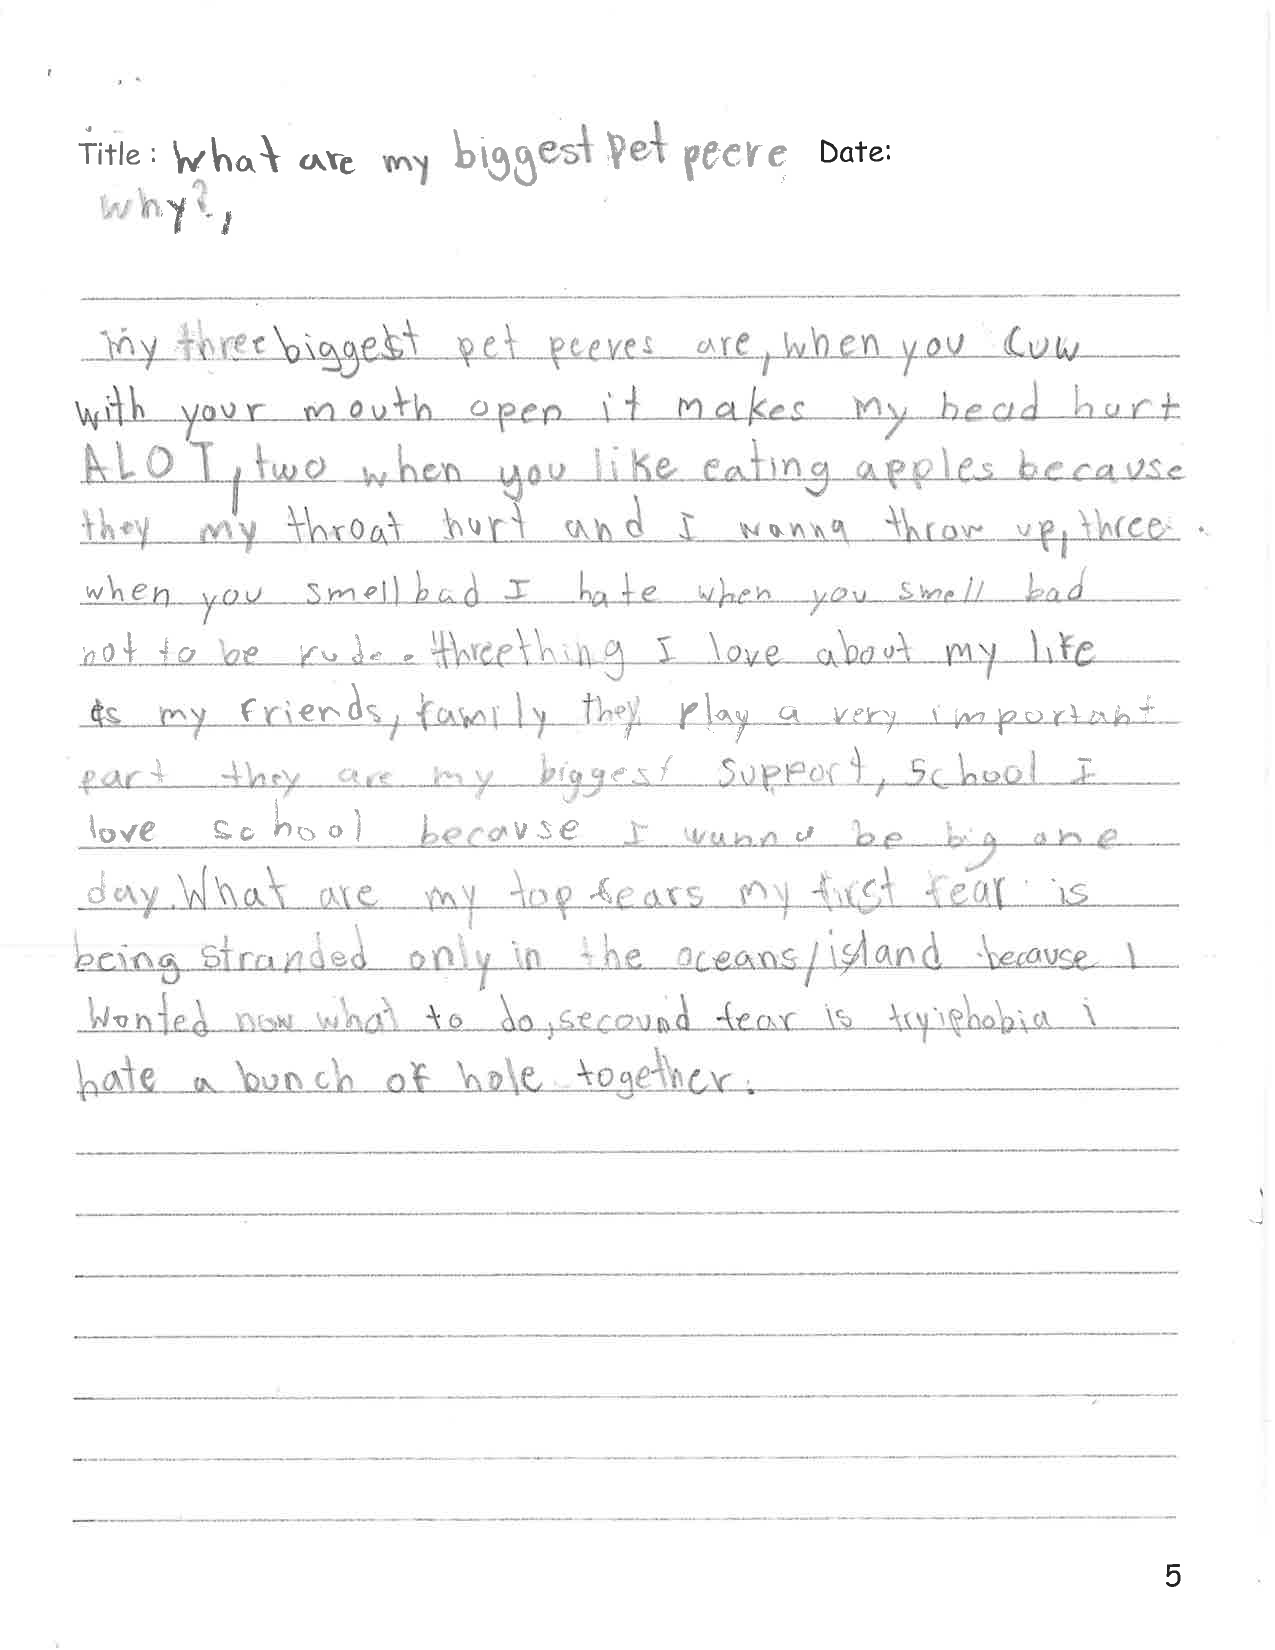 Title: What are my biggest pet peeve Date:
why?,
My three biggest pet peeves are, when you cuw
with your mouth open it makes my head hurt
ALOT, two when you like eating apples because
they my throat hurt and I wanna throw up, three
when you smell bad I hate when you smell bad
not to be rude. threething I love about my life
is my friends, family they play a very important
part they are my biggest support, school I
love school because I wunna be big one
day. What are my top fears my first fear is
being stranded only in the oceans/island because I
wonted now what to do, secound fear is tryiphobia i
hate a bunch of hole together.
5